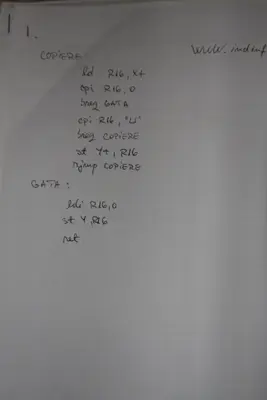 1.
COPIERE:
ld R16, X+
cpi R16, 0
breq GATA
cpi R16, 'U'
breq COPIERE
st Y+, R16
rjmp COPIERE
GATA:
ldi R16, 0
st Y, R16
ret